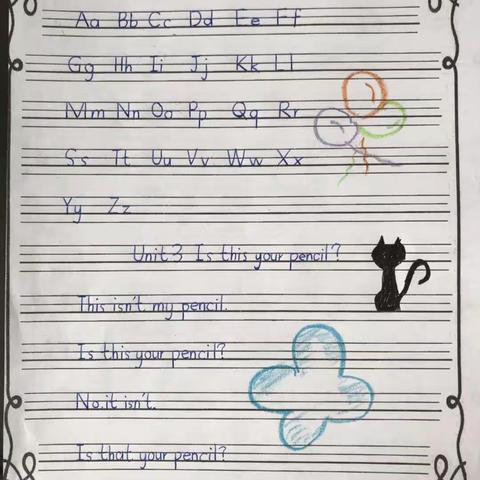 Aa Bb Cc Dd Ee Ff
Gg Hh Ii Jj Kk Ll
Mm Nn Oo Pp Qq Rr
Ss Tt Uu Vv Ww Xx
Yy Zz
Unit 3 Is this your pencil?
This isn't my pencil.
Is this your pencil?
No.it isn't.
Is that your pencil?